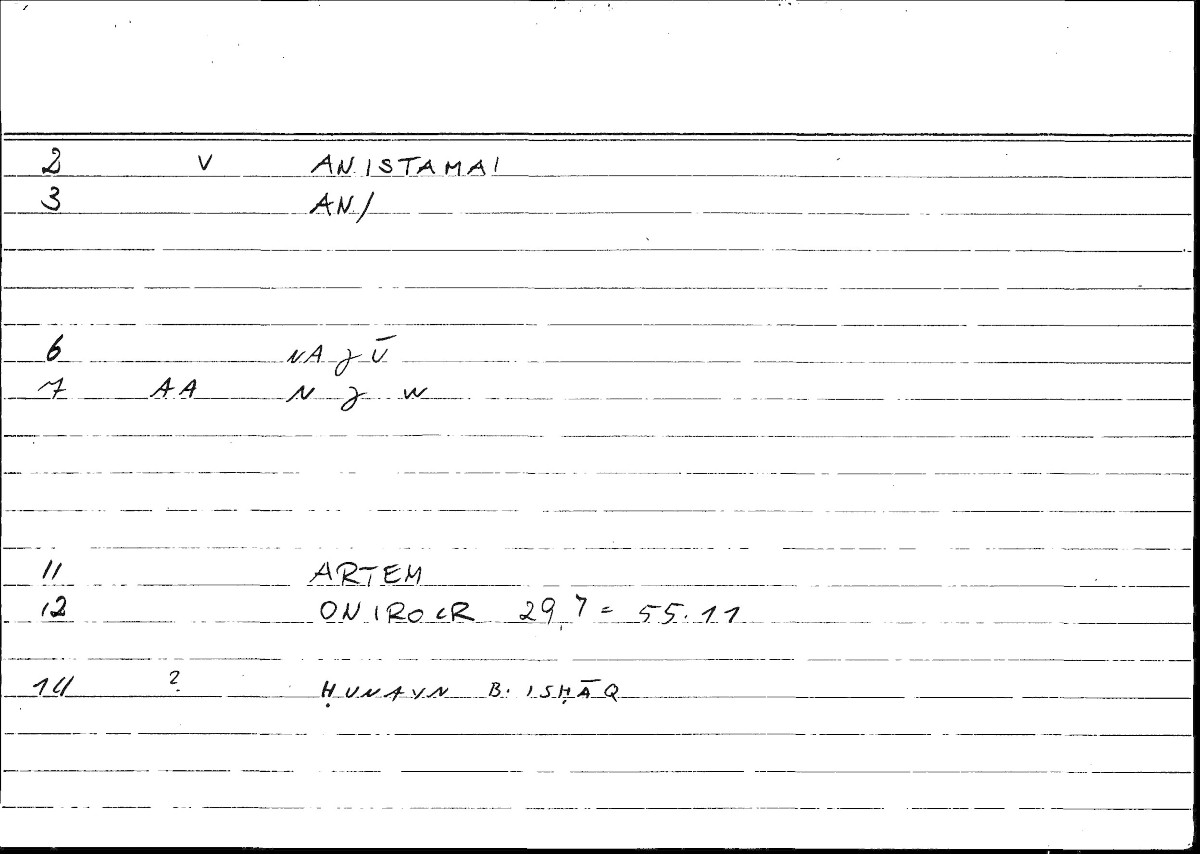 2 V AN.ISTAMAI
3 AN/
6 NAJŪ
7 AA N J W
11 ARTEM
12 ONIROCR 29,7 = 55.11
14 ? ḤUNAYN B. ISḤĀQ